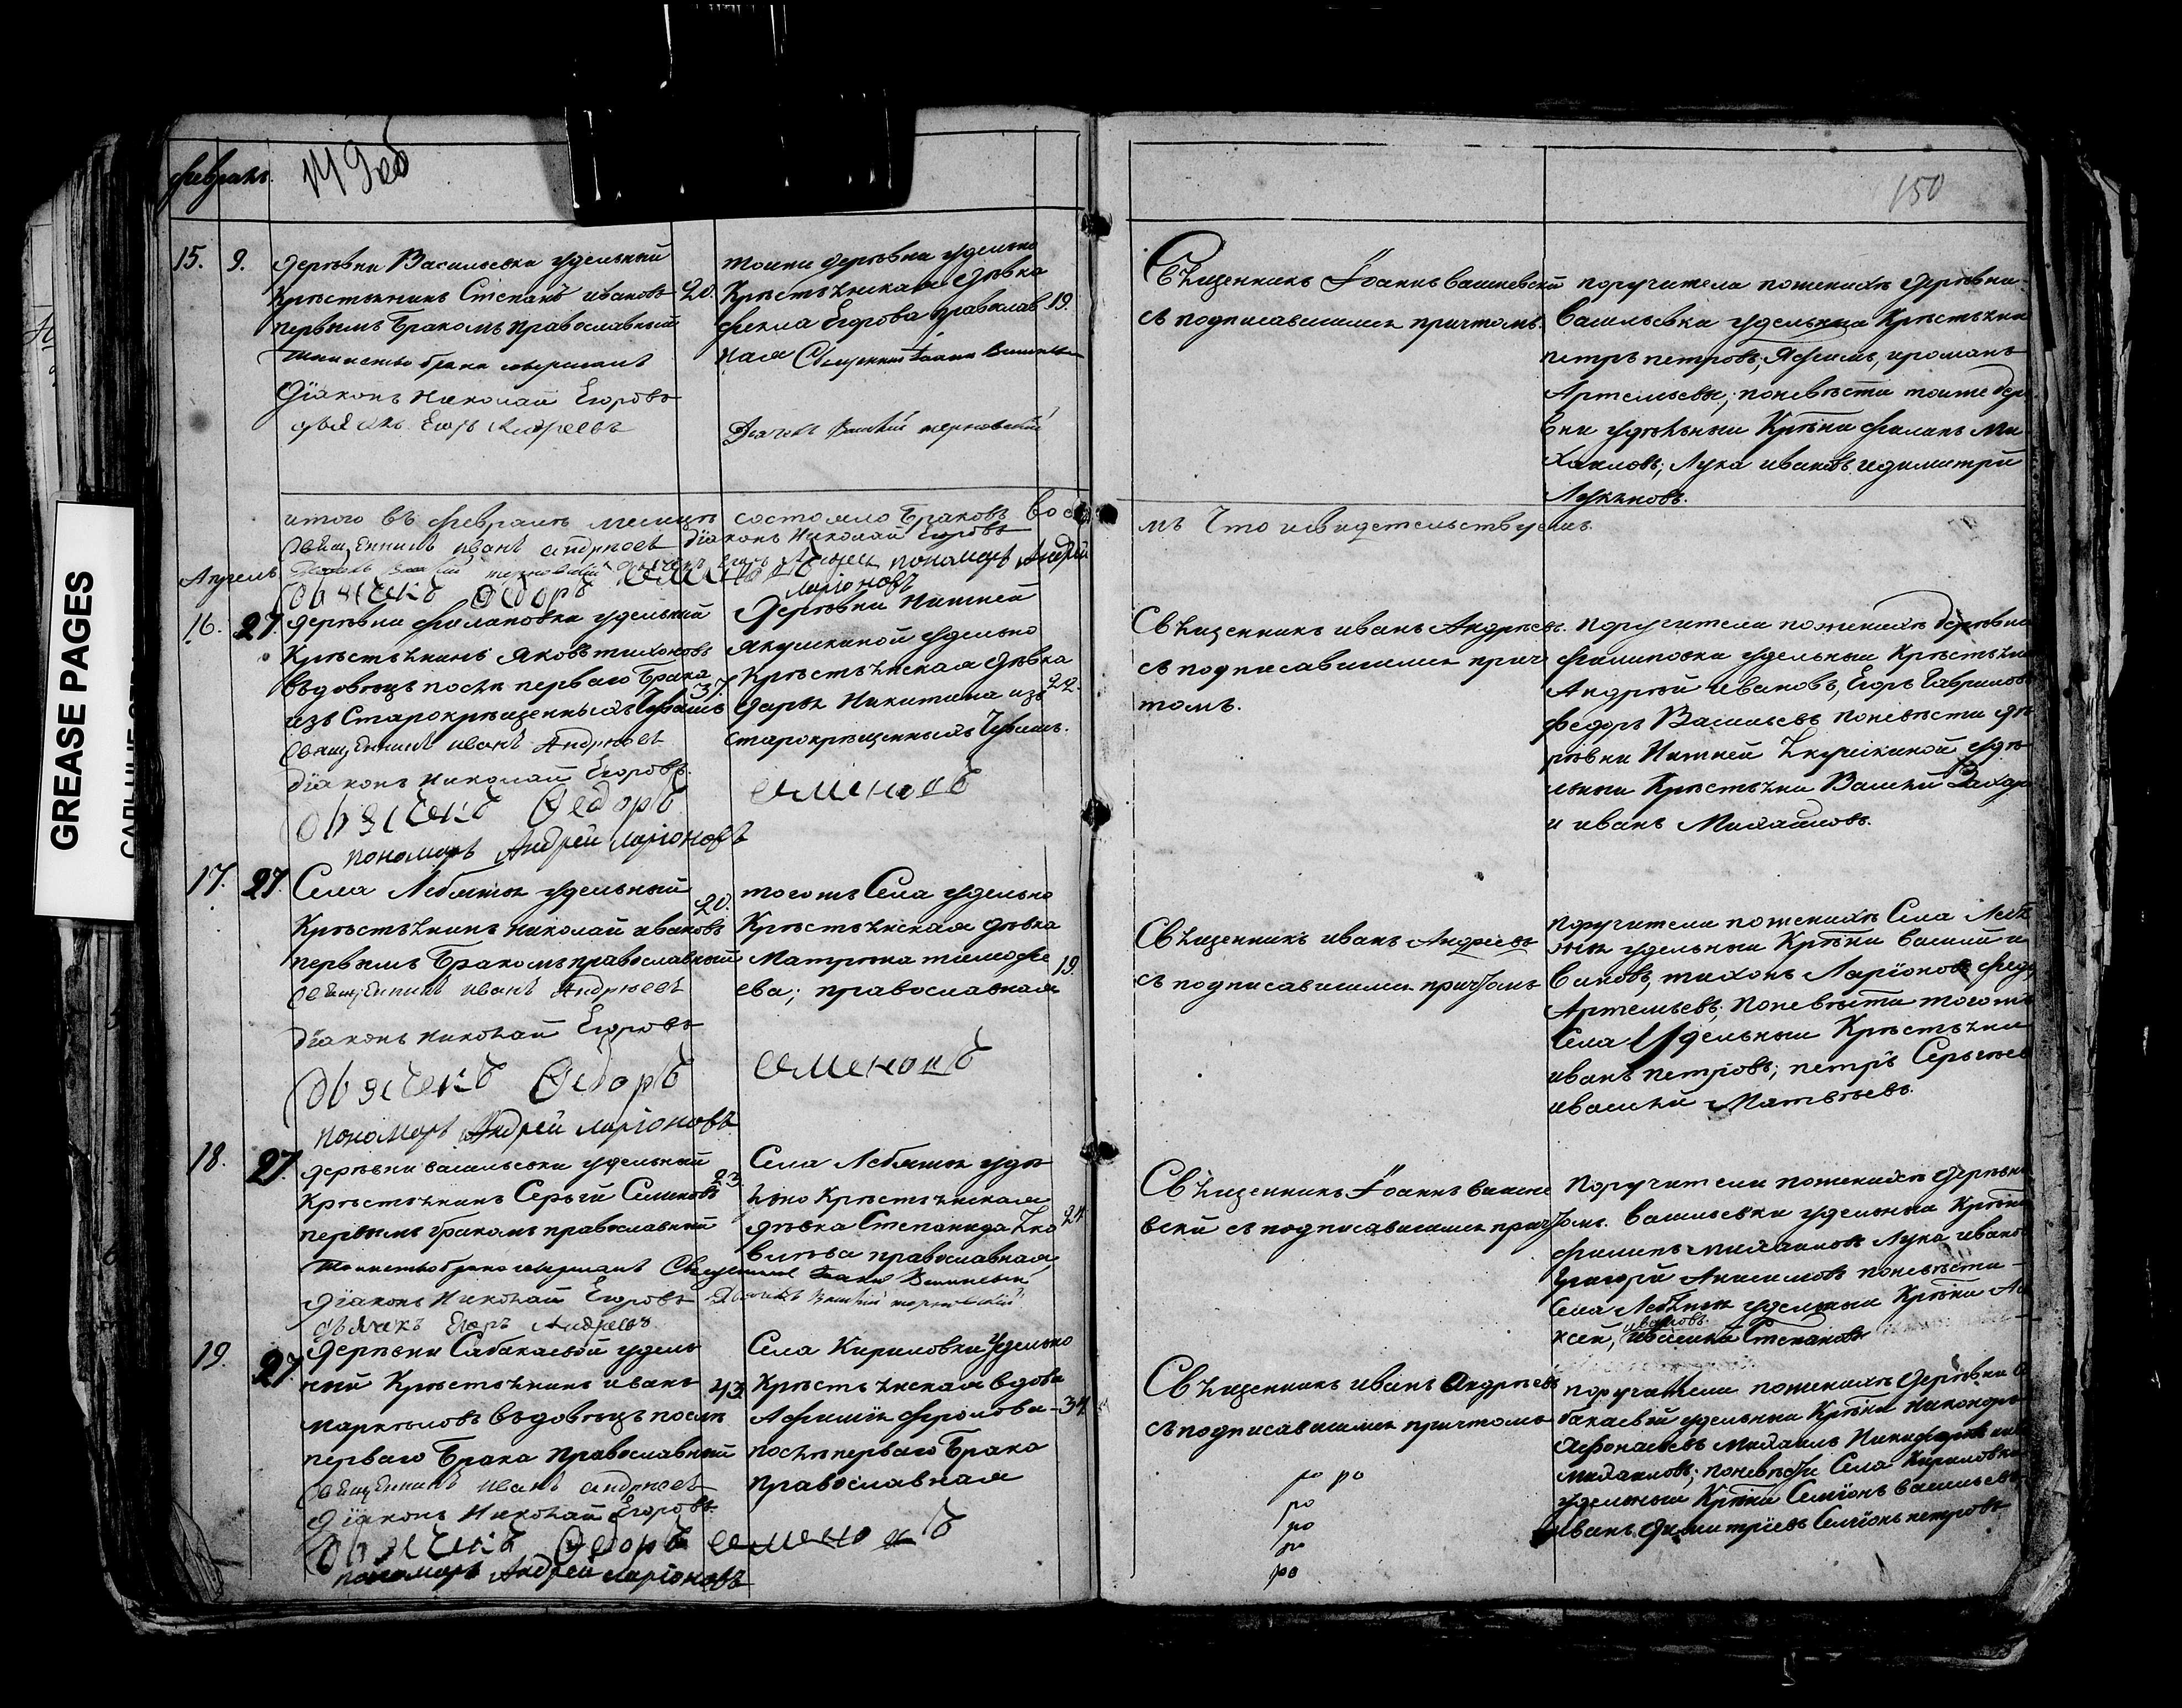 февраль
149 об
150
15. 9. Деревни Васильевки удельный
Крестьянинъ Степанъ ивановъ 20.
первымъ Бракомъ православный
таинство брака совершалъ
Дїаконъ Николай Егоровъ
дьячекъ Егоръ Андреевъ
тоижи деревни удельно
Крестьянская девка
фекла Егорова православ 19.
ная Священникъ Іоаннъ
Священникъ Іоаннъ
съ подписавшимся причтомъ.
поручители по женихе деревни
Васильевки удельныи Крестьяни
петръ петровъ, и романъ
Артемьевы; по невести тоиже дер
вни удельныи Крестьяни филипъ Ми
хаиловъ; Лука ивановъ и димитри
Лукиновъ.
итого въ феврале месице состояло Браковъ
мъ Что и свидетельствуемъ.
Священникъ иванъ андреевъ дїаконъ Николай Егоровъ
пономарь Андрей
ларїоновъ
дьячекъ Федоръ семеновъ
Апрель
16. 27. Деревни филиповки удельный
Крестьянинъ яковъ тихоновъ
вьдовецъ посли перваго Брака 37.
изъ Старокрещенныхъ Чувашъ
Священникъ иванъ Андреевъ
дїаконъ Николай Егоровъ.
дьячекъ Федоръ семеновъ
пономарь Андрей ларїоновъ
Деревни Нижней
якушкиной удельно
Крестьянская девка
дарья Никитина изъ 22.
старокрещенныхъ Чувашъ.
Священникъ иванъ Андреевъ.
съ подписавшимся прич
томъ.
поручители по женихе деревни
филиповки удельныи Крестьяни
Андрей ивановъ, Егоръ Гавриловъ
федоръ Васильевъ по невести де
ревни Нижней Якушкиной уде
льныи Крестьяни Василий Захар
и иванъ Михаиловъ.
17. 27. Села Лебяжья удельный
Крестьянинъ Николай ивановъ 20.
первымъ Бракомъ православный
Священникъ иванъ Андреевъ
дїаконъ Николай Егоровъ
дьячекъ Федоръ семеновъ
пономарь Андрей ларїоновъ
тогожъ Села удельно
Крестьянская девка
Матрона тимофе 19.
ева; православная
Священникъ иванъ Андреевъ
съ подписавшимся причтомъ
поручители по женихе Села Лебя
жья удельныи Крестьяни Василий и
вановъ, тихонъ Ларїоновъ федо
Артемьевъ; По невести тогожъ
Села Удельныи Крестьяни
иванъ петровъ; петръ Сергеев
и василий Матвеевъ.
18. 27. деревни васильевки удельный
Крестьянинъ Сергей Семионовъ 23.
первымъ браком православный
таинство брака совершалъ Священникъ Іоаннъ
дїаконъ Николай Егоровъ
дьячекъ Егоръ Андреевъ
Села Лебяжья уде
льно Крестьянская
девка Степанида Яко 24
влева православная
Священникъ Іоаннъ
вский съ подписавшимся причтомъ.
Поручители по женихе деревни
васильевки удельныи Крестьяни
филипъ михаиловъ Лука ивано
Григорй Анисимовъ по невести
Села Лебяжья удельныи Крестьяни Але
ксей ивановъ, и василий Степановъ
19. 27. деревни Сабакаевой удель
ный Крестьянинъ иванъ 43
маркеловъ въдовецъ после
перваго Брака Православный
Священникъ иванъ андреевъ
Дїаконъ Николай Егоровъ
дьячекъ Федоръ семеновъ
пономарь Андрей ларїоновъ
Села Кириловки Удельно
Крестьянская вдова
Афимия фролова 34
после перваго Брака
православная
Священникъ иванъ андреевъ
съ подписавшимся причтомъ
ро ро
ро
ро
ро
ро
поручители по женихе деревни Са
бакаевой удельныи Крестьяни Никоноръ
Афонасьевъ михаилъ Никифоровъ
михаиловъ; по невести Села Кириловки
удельныи Крестьяни Семїонъ васильевъ
иванъ димитрїевъ Семїонъ петровъ
GREASE PAGES